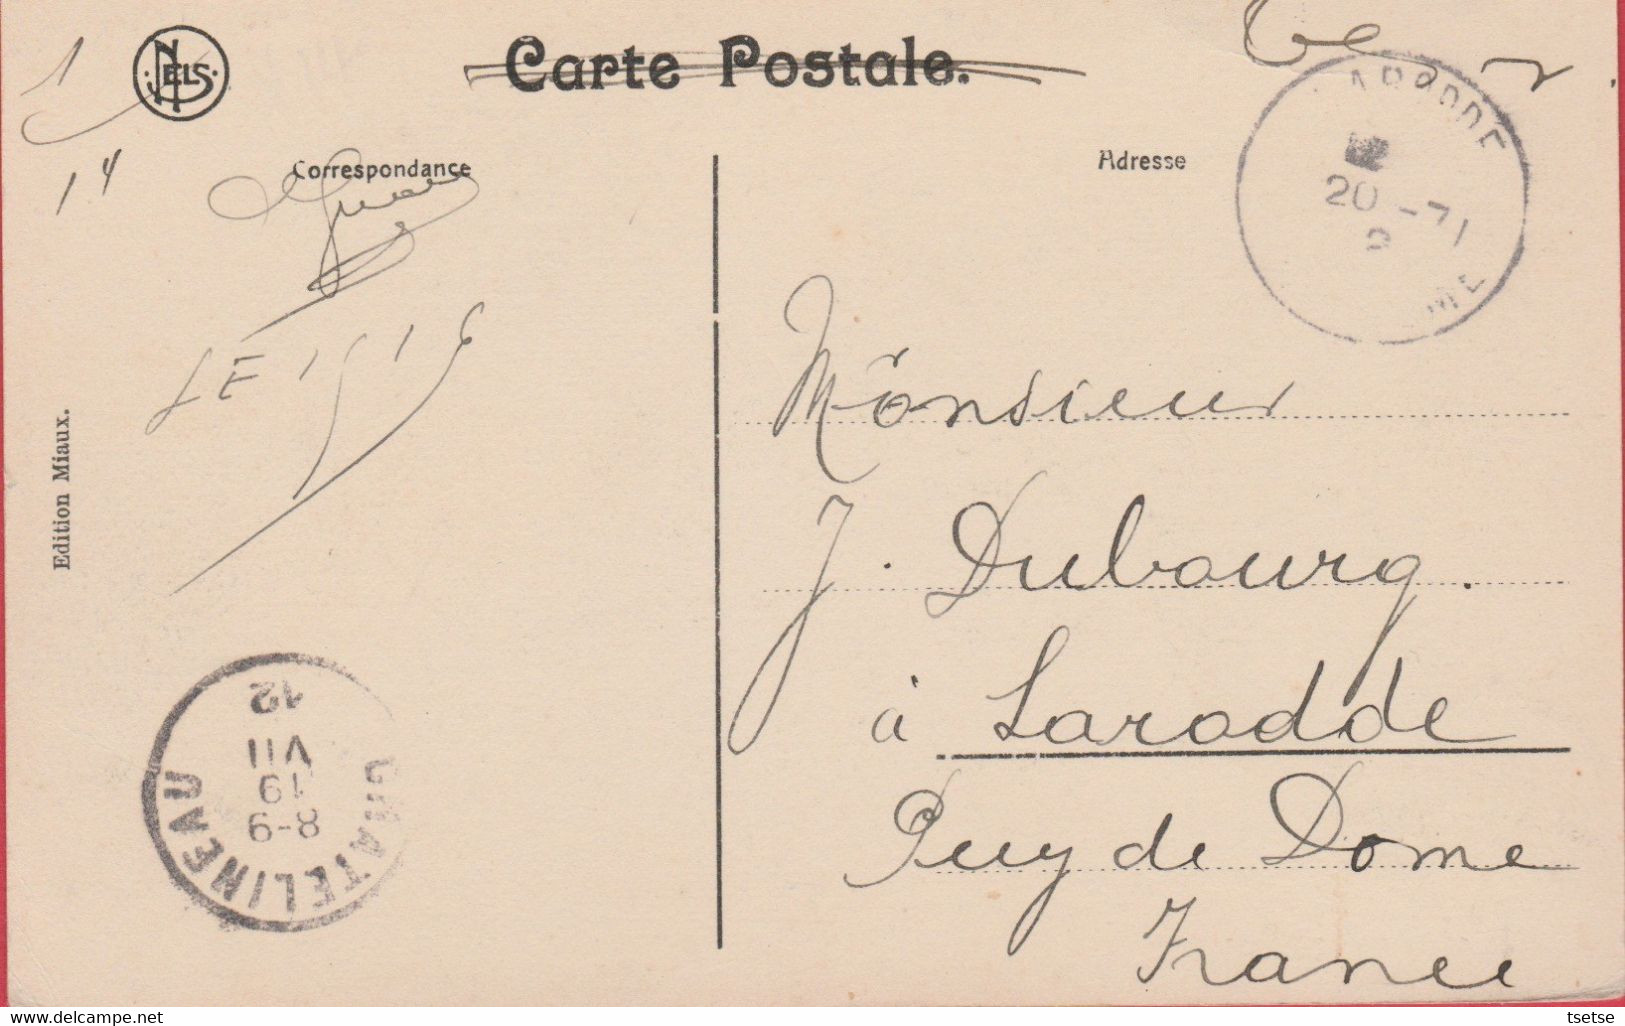 NELS
Carte Postale.
Correspondance
Adresse
1
14
LARODDE
20 -7
2
ME
Edition Miaux.
Monsieur
J. Dubourg.
à Larodde
Puy de Dome
France
CHATELINEAU
8-9
19
VII
12
www.delcampe.net
tsetse